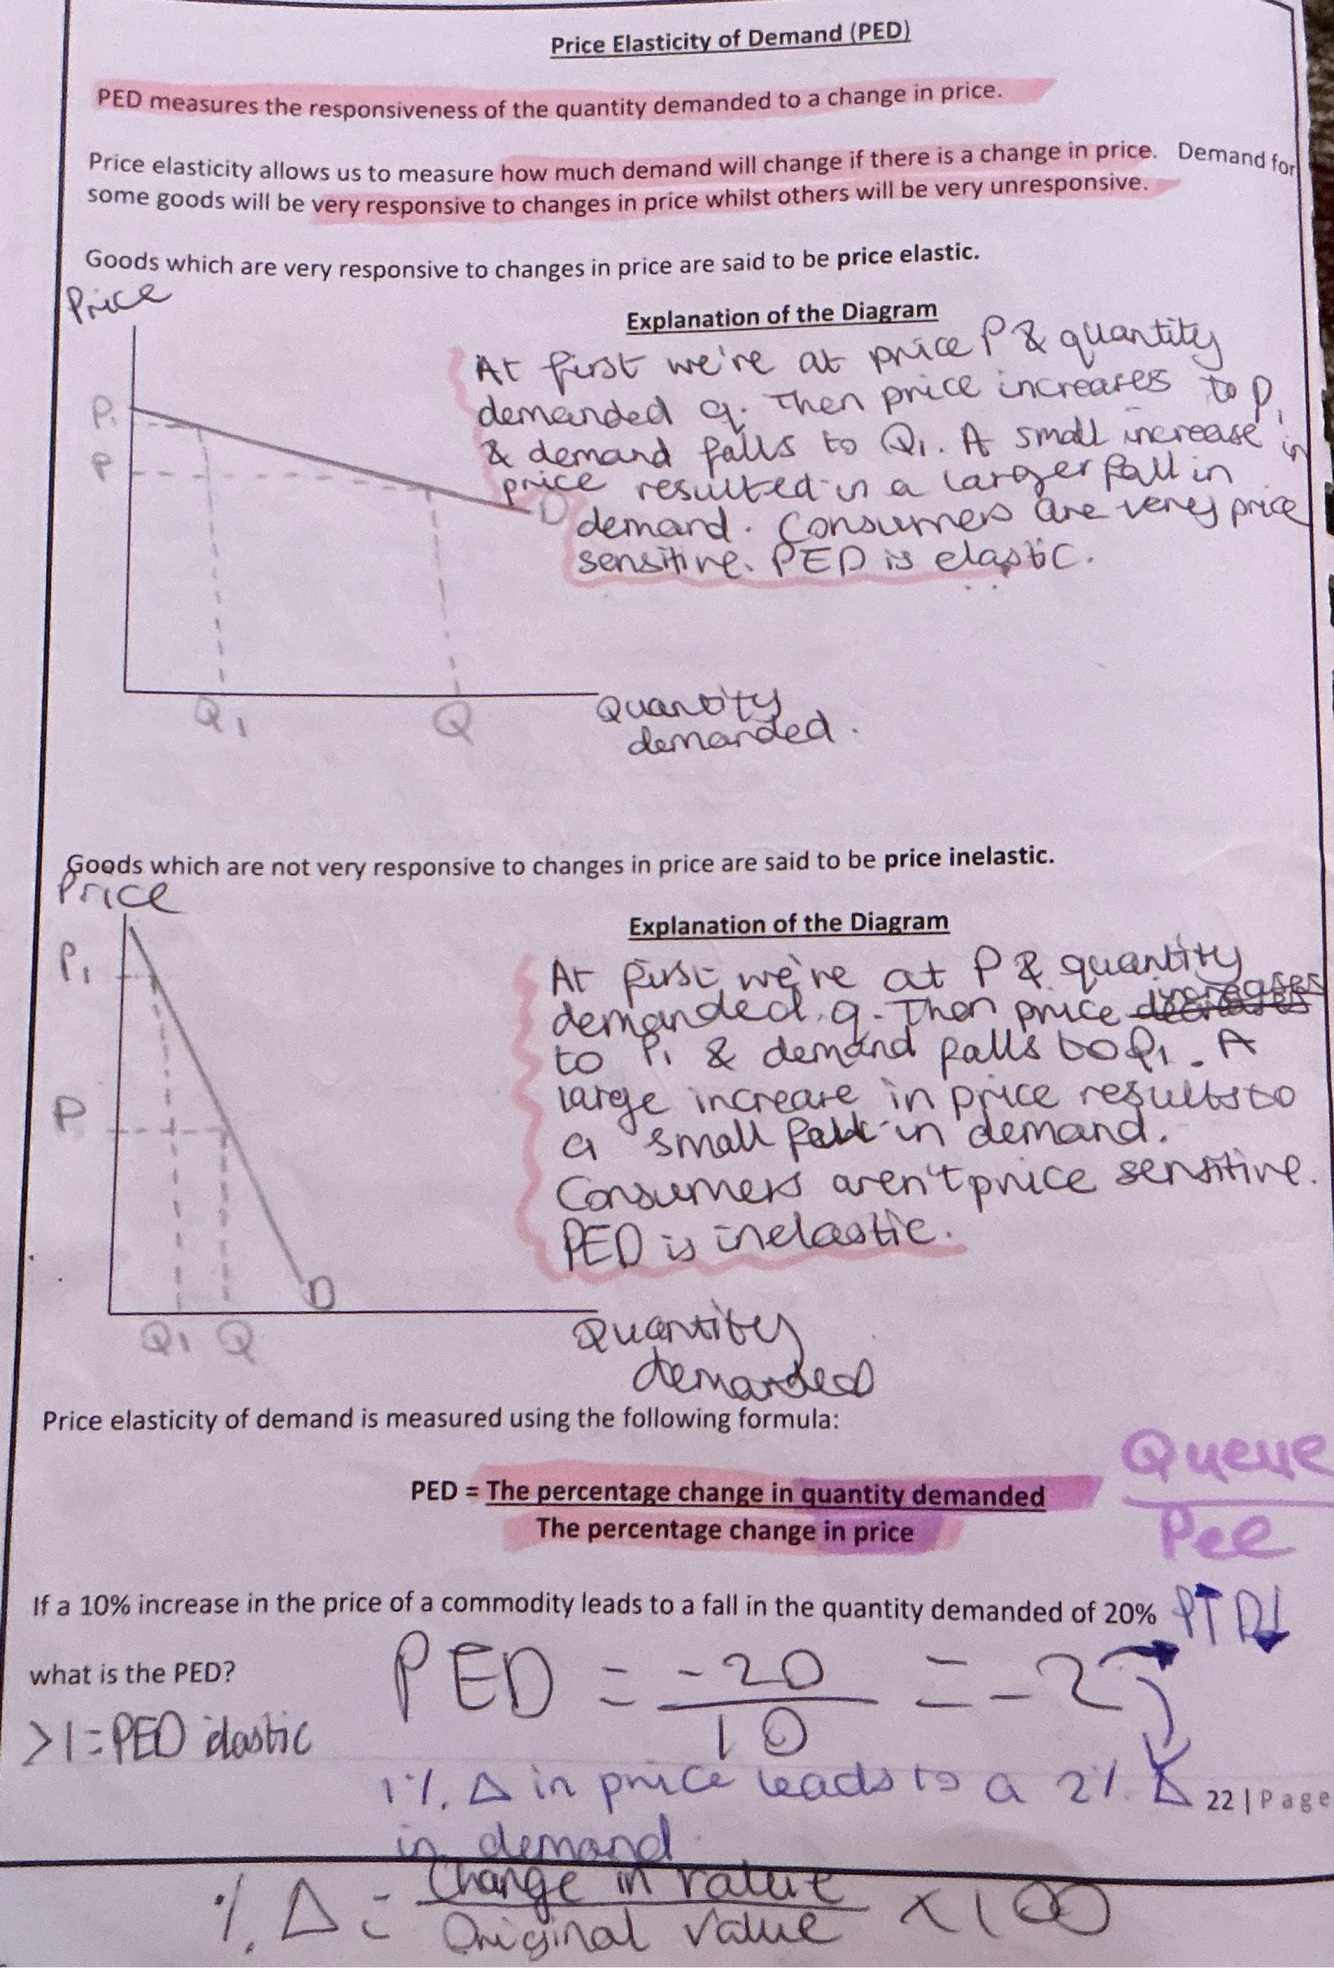 Price Elasticity of Demand (PED)
PED measures the responsiveness of the quantity demanded to a change in price.
Price elasticity allows us to measure how much demand will change if there is a change in price. Demand for
some goods will be very responsive to changes in price whilst others will be very unresponsive.
Goods which are very responsive to changes in price are said to be price elastic.
Price
Explanation of the Diagram
At first we're at price P & quantity
demanded q. Then price increases to P1
& demand falls to Q1. A small increase in
price resulted in a larger fall in
demand. Consumers are very price
sensitive. PED is elastic.
P1
P
D
Q1 Q
Quantity
demanded.
Goods which are not very responsive to changes in price are said to be price inelastic.
Price
Explanation of the Diagram
At first we're at P & quantity
demanded q. Then price decreases increases
to P1 & demand falls to Q1. A
large increase in price results to
a small fall in demand.
Consumers aren't price sensitive.
PED is inelastic.
P1
P
D
Q1 Q
Quantity
demanded
Price elasticity of demand is measured using the following formula:
PED = The percentage change in quantity demanded
The percentage change in price
Queue
Pee
If a 10% increase in the price of a commodity leads to a fall in the quantity demanded of 20%
P↑ D↓
what is the PED?
PED = -20/10 = -2
>1 = PED elastic
1% Δ in price leads to a 2% Δ
in demand
22 | Page
% Δ = Change in value / Original value × 100